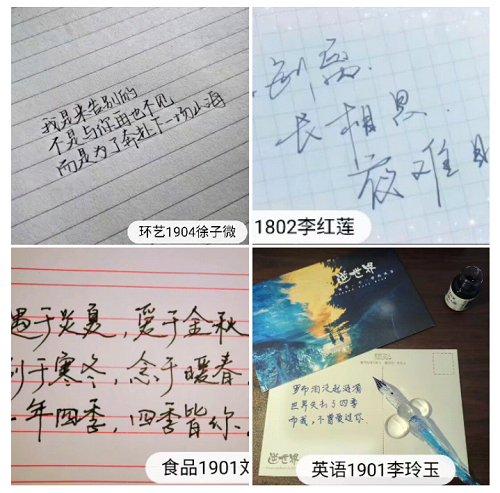 我是来告别的
不是与你再也不见
而是为了奔赴下一场山海
环艺1904徐子微
长相思.
夜难
1802李红莲
遇于炎夏,爱于金秋
于寒冬,念于暖春,
年四季,四季皆你.
食品1901刘
逆世界
罗布泊泛起涟漪
世界失去了四季
而我,不曾爱过你
逆世界
英语1901李玲玉